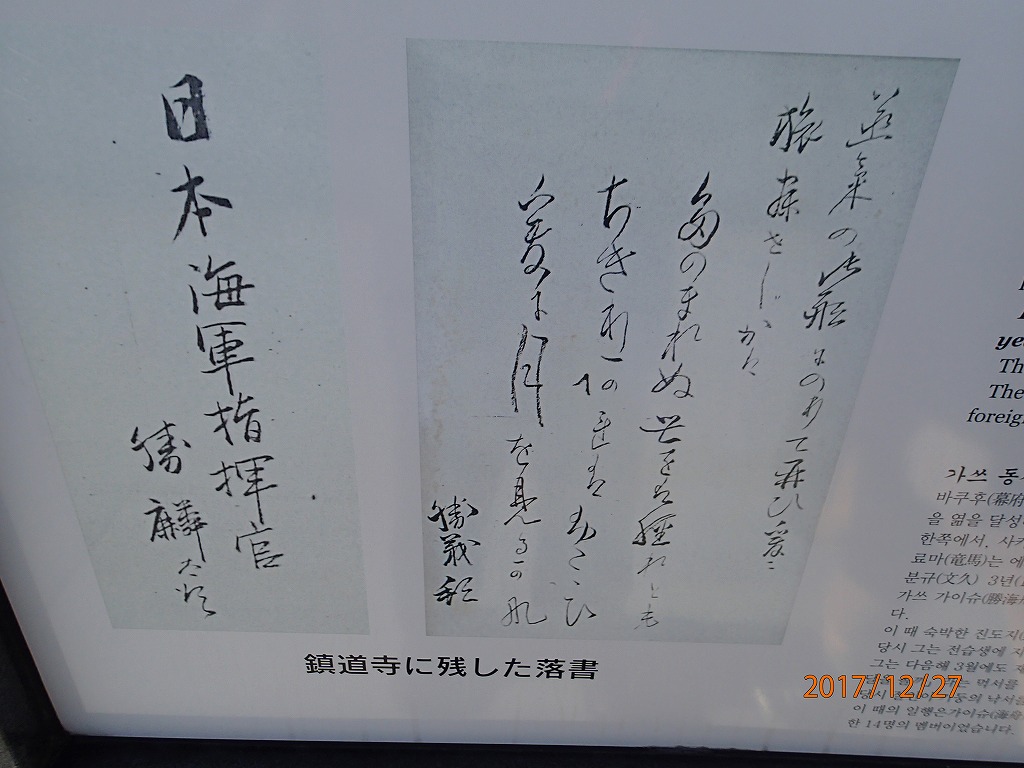 日本海軍指揮官
勝麟太郎
蒸氣の御船にのりて再ひ爰に
旅寐せしかは
のまれぬ世をは經れとも
爰に月を見るかな
勝義邦
鎮道寺に残した落書
The
foreig
가쓰 동
바쿠후(幕府
을 엶을 달성
한쪽에서, 사카
료마(竜馬)는 에
분규(文久) 3년(
가쓰 가이슈(勝海
다.
이 때 숙박한 진도지(
당시 그는 전습생에 지
그는 다음해 3월에도 재
는 먹서를
동의 낙서를
이 때의 일행은가이슈(海舟
한 14명의 멤버이었습니다.
2017/12/27